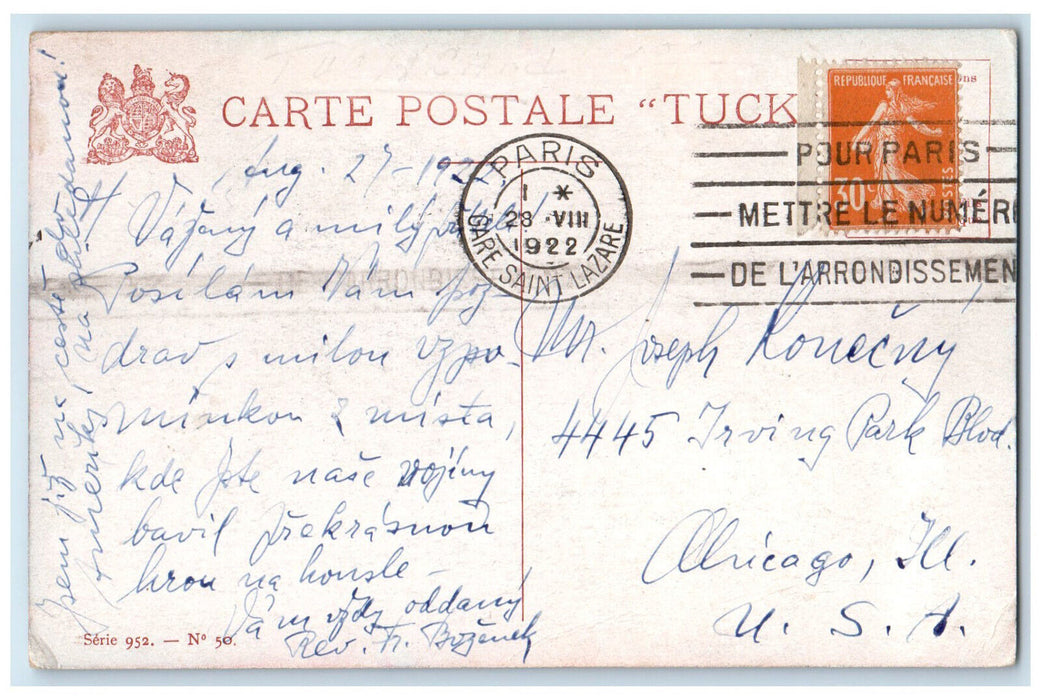 CARTE POSTALE “TUCK
RÉPUBLIQUE FRANÇAISE
30c
POSTES
PARIS
1 *
28 VIII
1922
GARE SAINT LAZARE
POUR PARIS
METTRE LE NUMÉR
DE L'ARRONDISSEMEN
Aug. 27 - 1922
Vážený a milý
Posílám Vám poz-
drav s milou vzpo-
mínkou z místa,
kde jste naše vojíny
bavil překrásnou
hrou na housle -
Vám vždy oddaný
Rev. Fr. Boženek
Jsem již na cestě do
Ameriky, na
Mr. Joseph Konečný
4445 Irving Park Blvd.
Chicago, Ill.
U. S. A.
Série 952. — No 50.